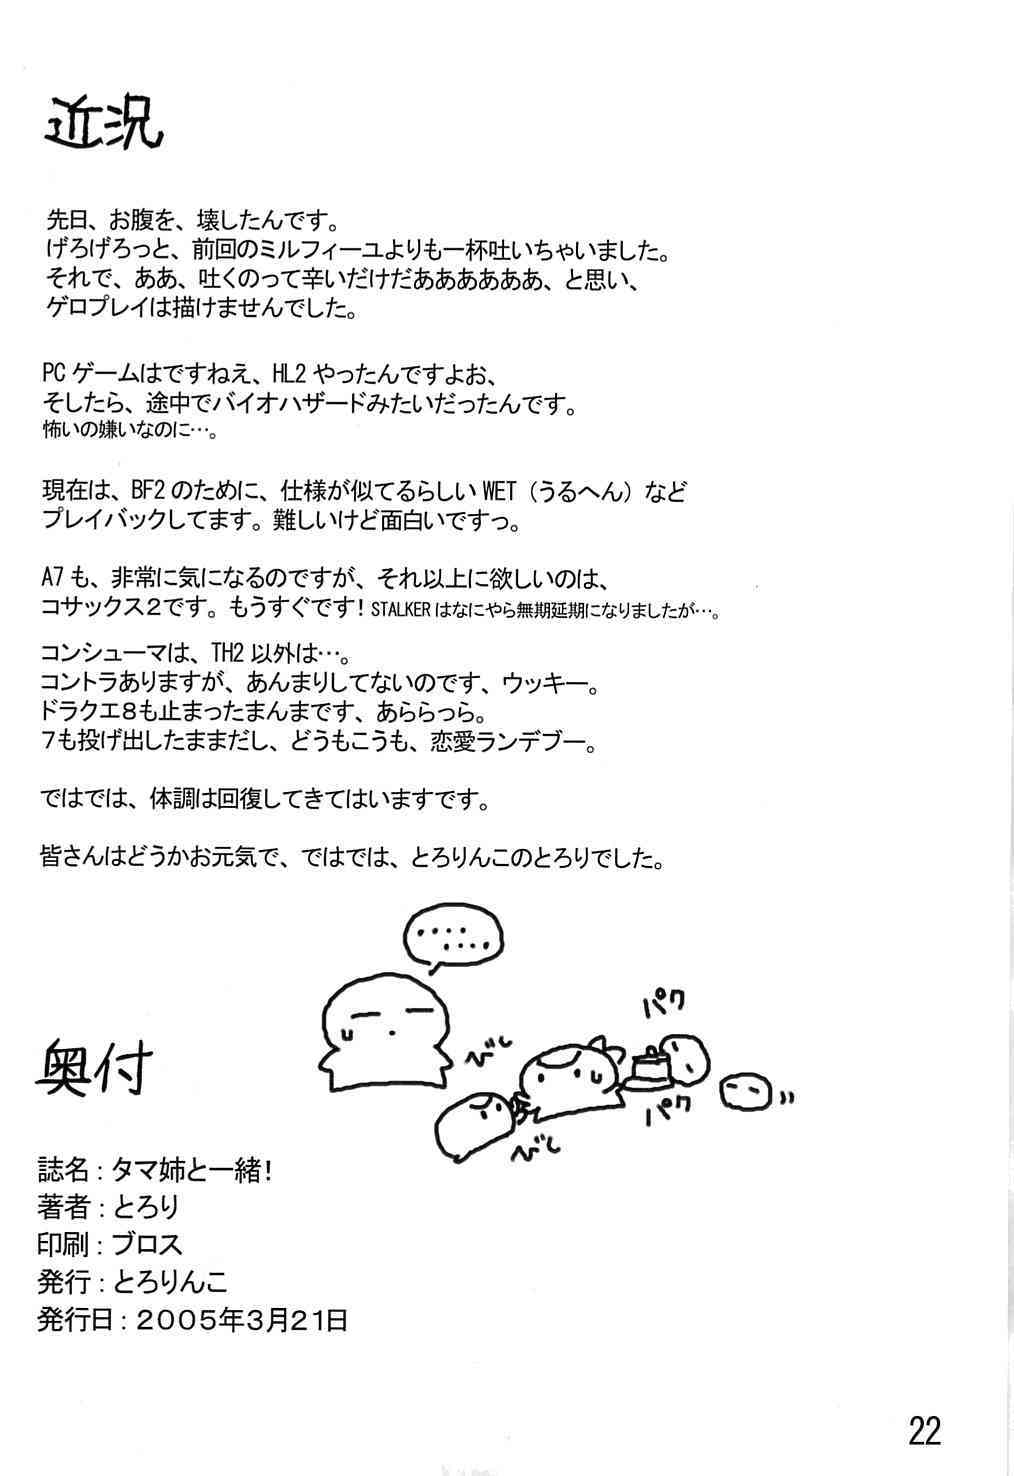 近況
先日、お腹を、壊したんです。
げろげろっと、前回のミルフィーユよりも一杯吐いちゃいました。
それで、ああ、吐くのって辛いだけだああああああ、と思い、
ゲロプレイは描けませんでした。
PCゲームはですねえ、HL2やったんですよお、
そしたら、途中でバイオハザードみたいだったんです。
怖いの嫌いなのに…。
現在は、BF2のために、仕様が似てるらしいWET（うるへん）など
プレイバックしてます。難しいけど面白いですっ。
A7も、非常に気になるのですが、それ以上に欲しいのは、
コサックス2です。もうすぐです！STALKERはなにやら無期延期になりましたが…。
コンシューマは、TH2以外は…。
コントラありますが、あんまりしてないのです、ウッキー。
ドラクエ８も止まったまんまです、あららっら。
７も投げ出したままだし、どうもこうも、恋愛ランデブー。
ではでは、体調は回復してきてはいますです。
皆さんはどうかお元気で、ではでは、とろりんこのとろりでした。
・・・・
・・・・
パク
べし
パク
べし
奥付
誌名：タマ姉と一緒！
著者：とろり
印刷：ブロス
発行：とろりんこ
発行日：２００５年３月２１日
22